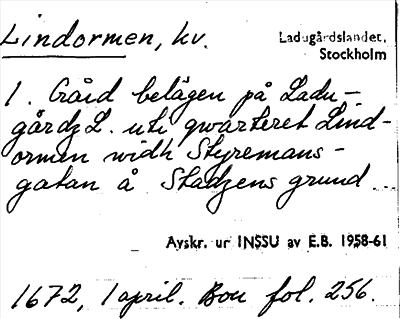 Lindormen, kv.
Ladugårdslandet,
Stockholm
1. Gård belägen på Ladu-
gårdz L. uti qwarteret Lind-
ormen widh Styremans-
gatan å Stadzens grund
Avskr. ur INSSU av E.B. 1958-61
1672, 1 april. Bou fol. 256.